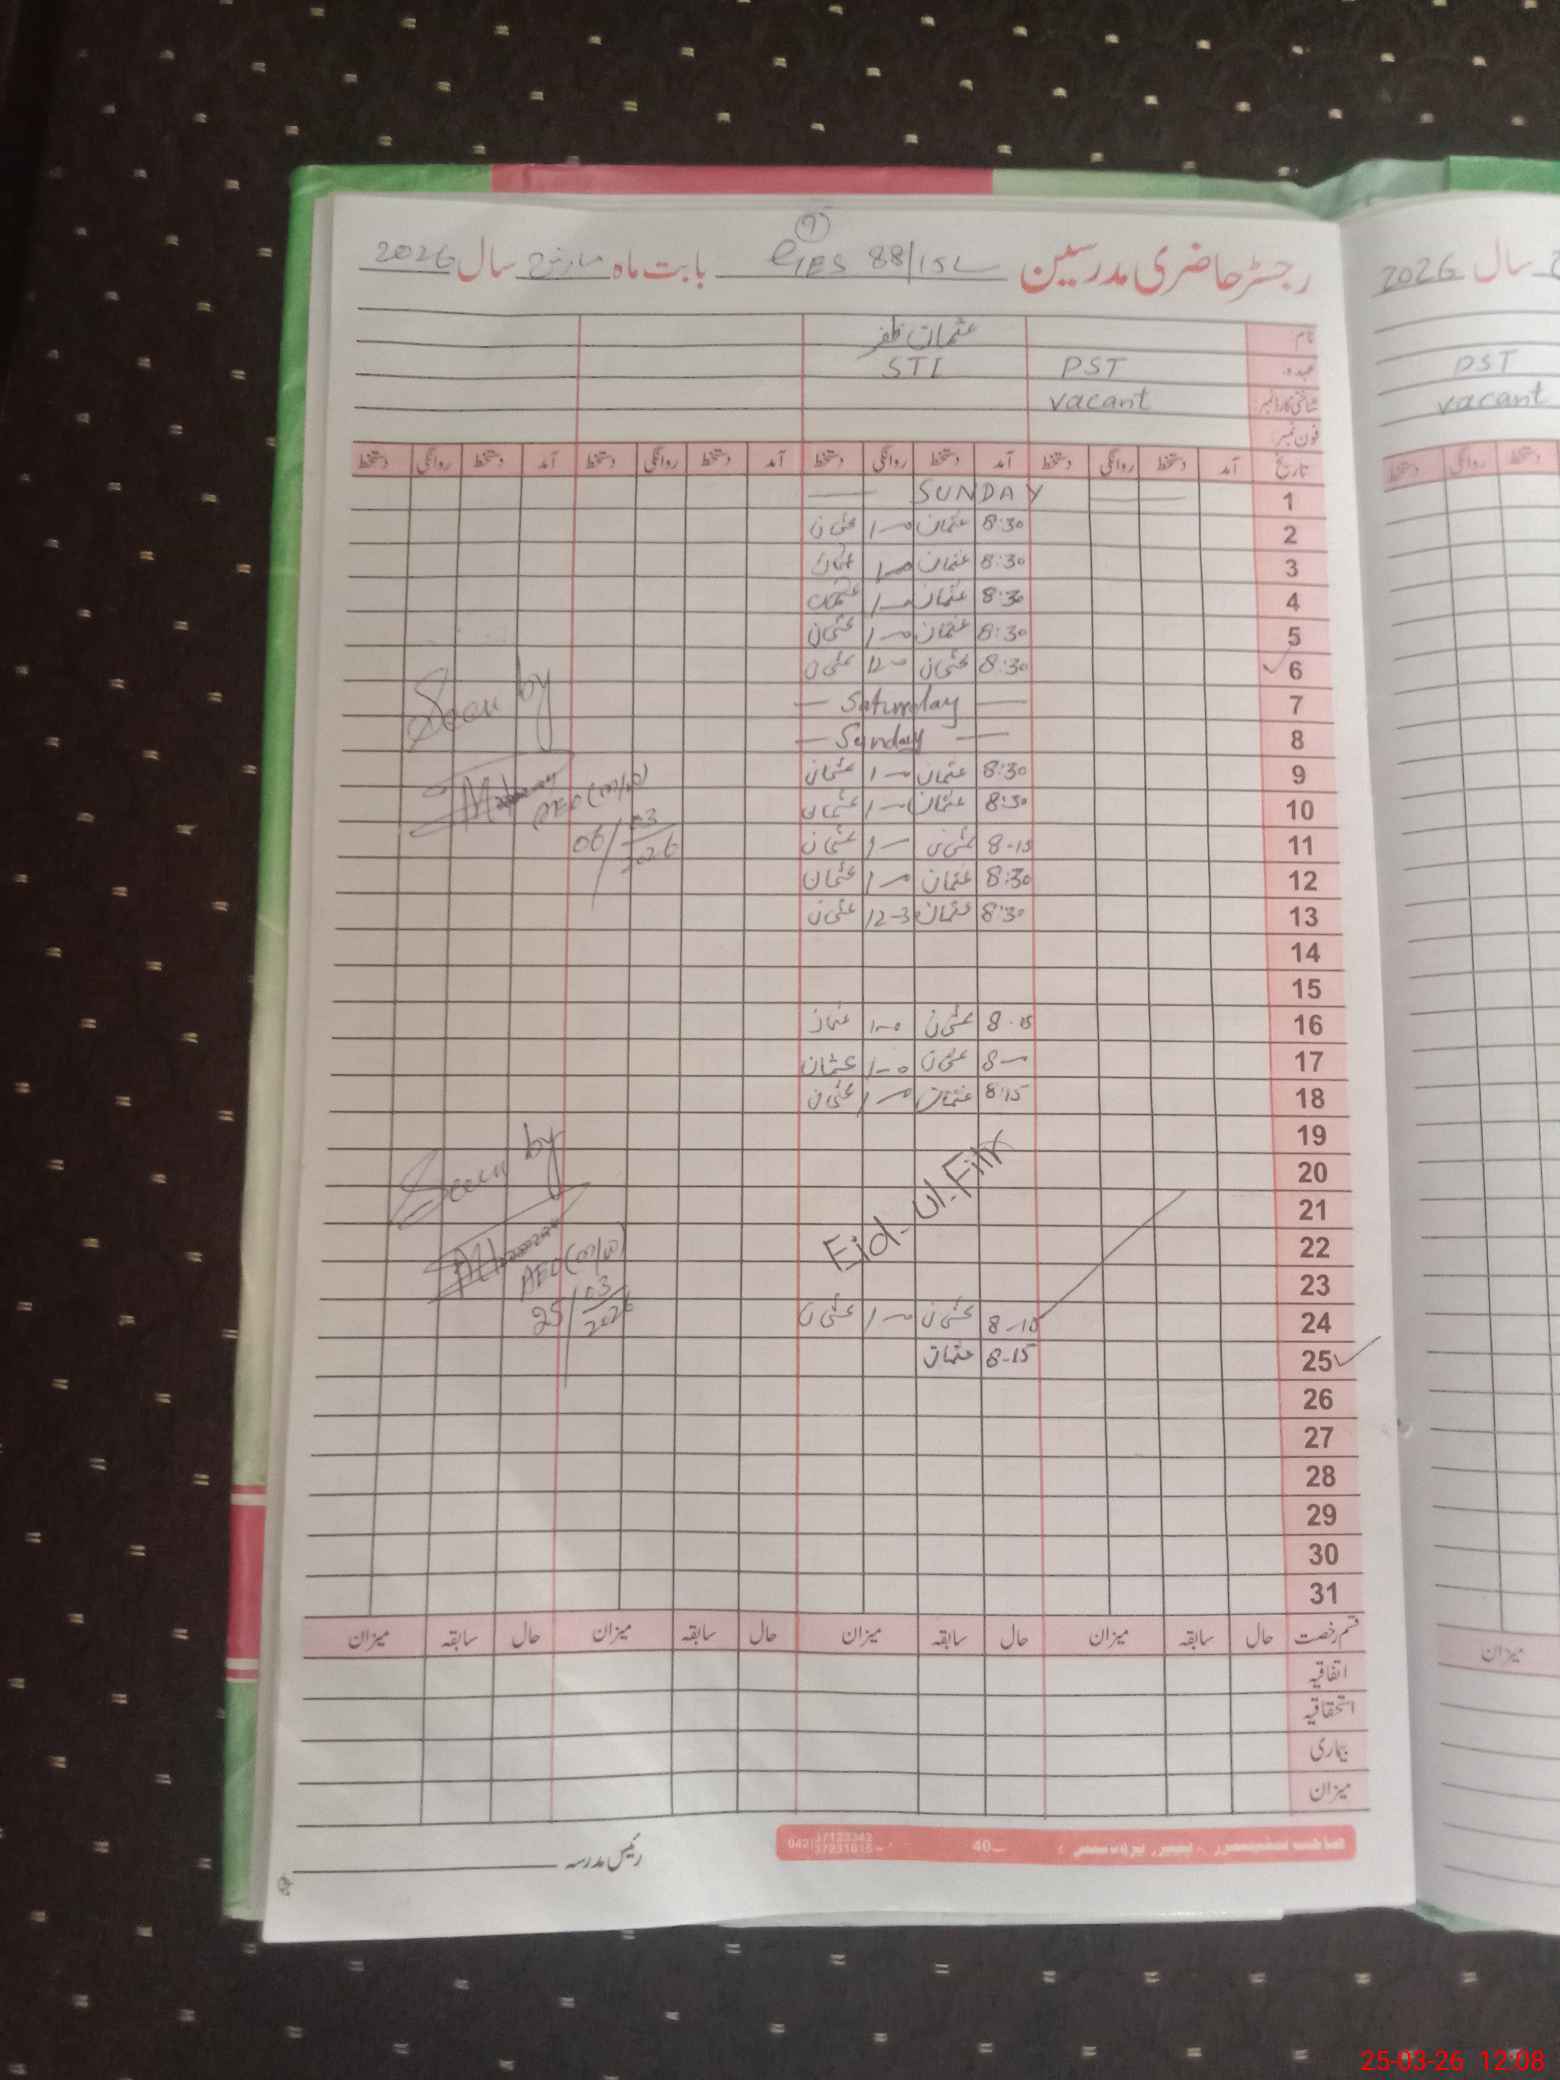 9
رجسٹر حاضری مدرسین GES 88/15L بابت ماہ مارچ سال 2026
نام عثمان ظفر
عہدہ PST STI
شناختی کارڈ نمبر vacant
فون نمبر
تاریخ آمد دستخط روانگی دستخط آمد دستخط روانگی دستخط آمد دستخط روانگی دستخط آمد دستخط روانگی دستخط
1 — SUNDAY —
2 8:30 عثمان 1—0 عثمان
3 8:30 عثمان 1—0 عثمان
4 8:30 عثمان 1—0 عثمان
5 8:30 عثمان 1—0 عثمان
6 8:30 عثمان 12—0 عثمان
7 — Saturday —
8 — Sunday —
9 8:30 عثمان 1—0 عثمان
10 8:30 عثمان 1—0 عثمان
11 8-15 عثمان 1— عثمان
12 8:30 عثمان 1—0 عثمان
13 8:30 عثمان 12-3 عثمان
14
15
16 8-15 عثمان 1-0 عثمان
17 8— عثمان 1-0 عثمان
18 8:15 عثمان 1—0 عثمان
19
20
21
22
23
Eid-ul-Fitr
24 8-15 عثمان 1—0 عثمان
25 8-15 عثمان
26
27
28
29
30
31
Seen by
AEO (m/w)
06/03/2026
Seen by
AEO (m/w)
25/03/2026
قسم رخصت حال سابقہ میزان حال سابقہ میزان حال سابقہ میزان حال سابقہ میزان
اتفاقیہ
استحقاقیہ
بیماری
میزان
رئیس مدرسہ
40
042 37123343
37231615
سال 2026
PST
vacant
دستخط روانگی دستخط
میزان
25-03-26 12:08